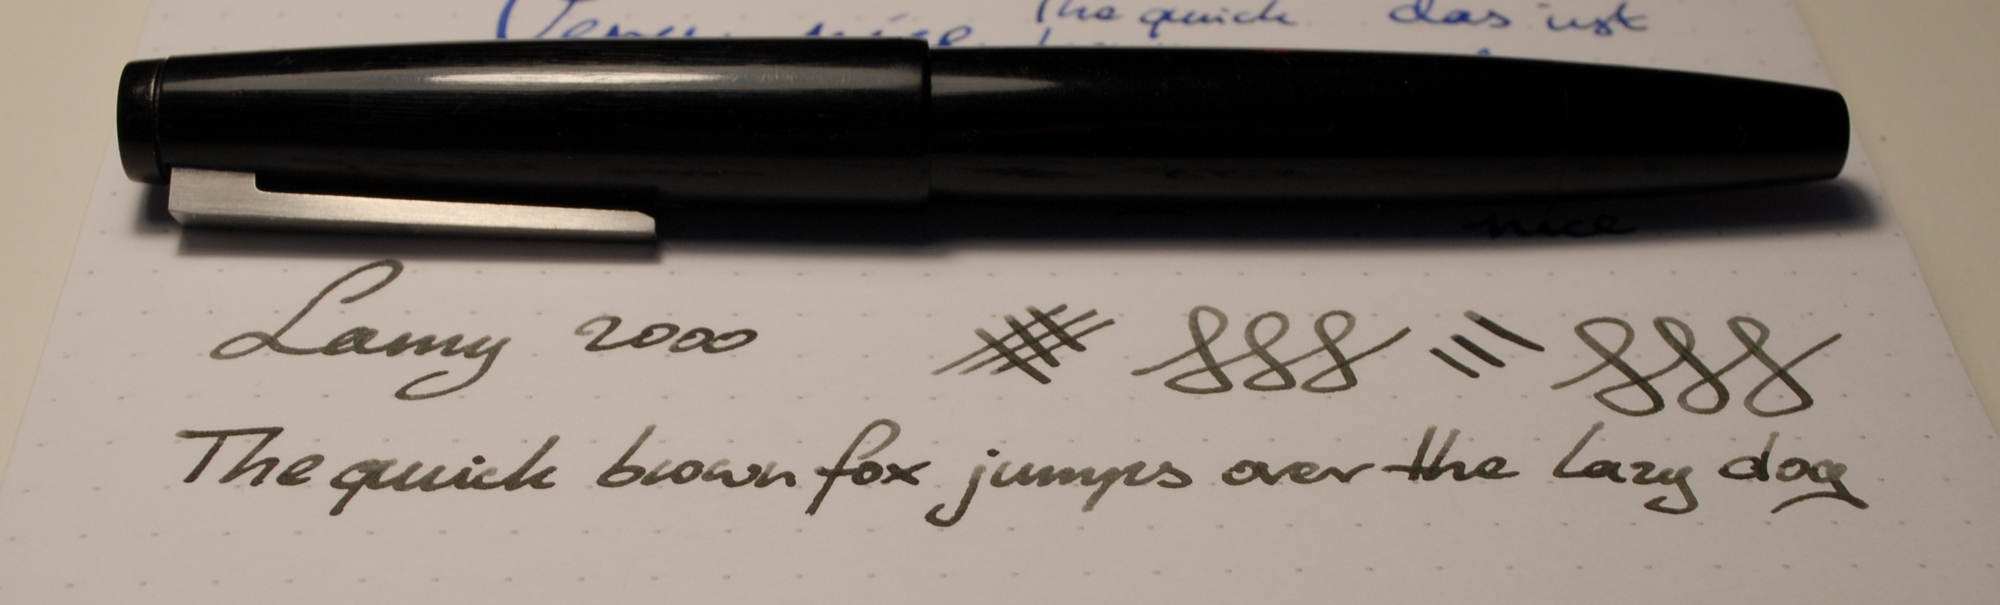 The quick das ist
nice
Lamy 2000
The quick brown fox jumps over the lazy dog